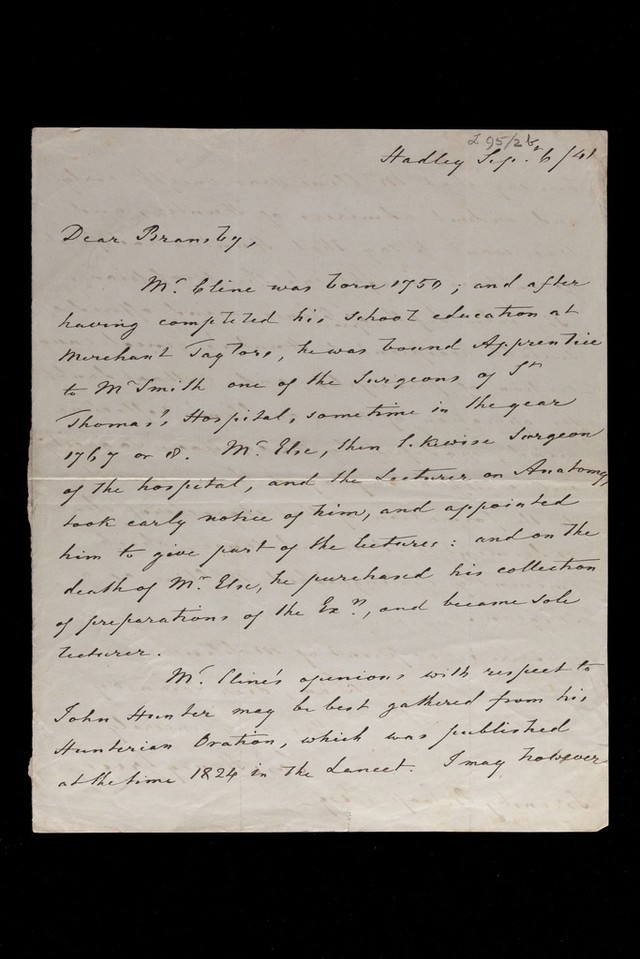 295/26
Hadley Sep.r 6/41
Dear Bransby,
Mr. Cline was born 1750; and after
having completed his school education at
Merchant Taylors, he was bound Apprentice
to Mr Smith one of the Surgeons of St
Thomas's Hospital, sometime in the year
1767 or 8. Mr. Else, then likewise Surgeon
of the hospital, and the Lecturer on Anatomy,
took early notice of him, and appointed
him to give part of the lectures: and on the
death of Mr. Else, he purchased his collection
of preparations of the Exn., and became sole
lecturer.
Mr. Cline's opinions with respect to
John Hunter may be best gathered from his
Hunterian Oration, which was published
at the time 1824 in the Lancet. I may however